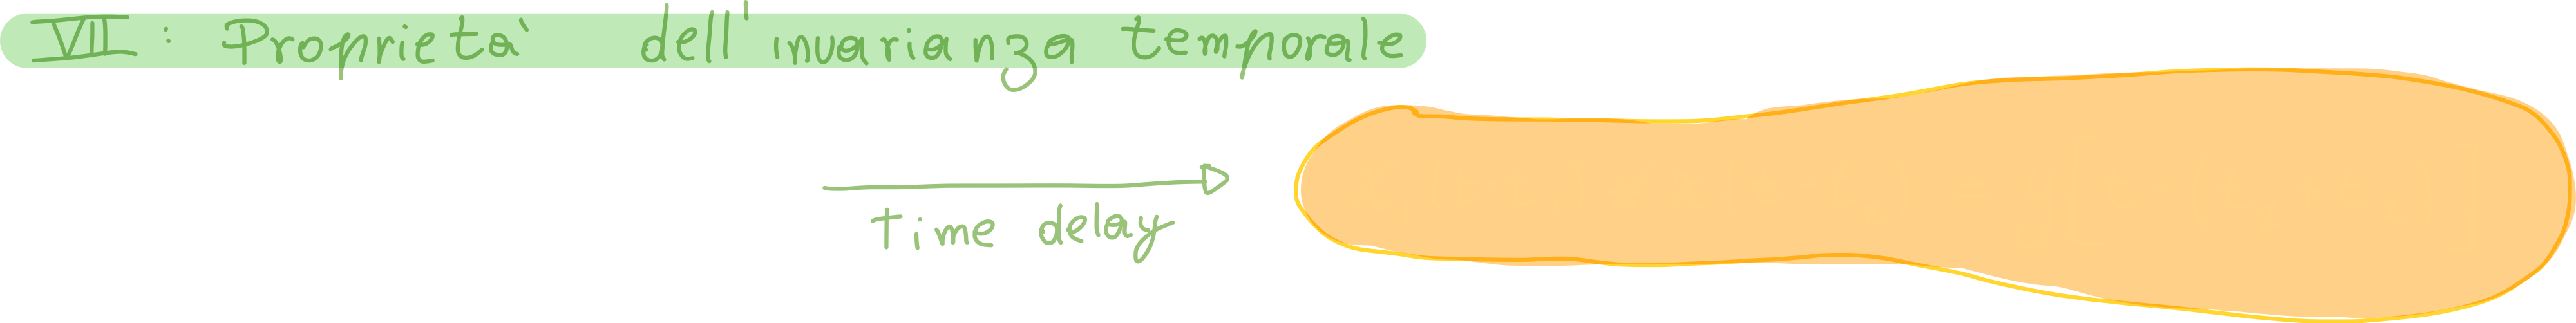 VII: Proprietà dell'invarianza temporale
Time delay